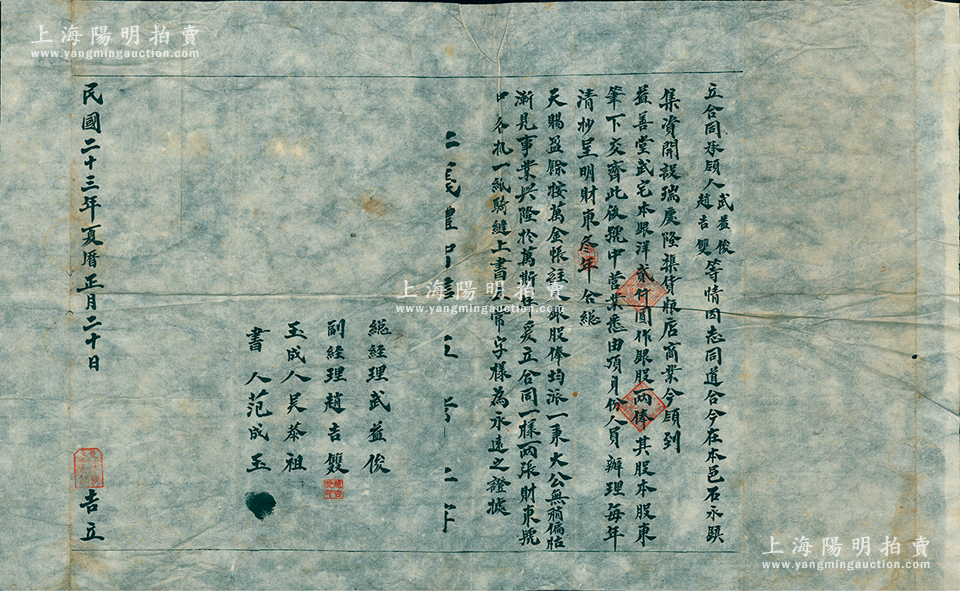 立合同承領人武益俊趙吉雙等情因志同道合今在本邑石永鎮
集資開設瑞慶隆集貨粮店商業今領到
益善堂武宅本銀洋貳仟圓作銀股兩俸其股本股東
筆下交齊此後號中營業悉由頂身份人員辦理每年
清抄呈明財東叁年合總
天賜盈餘按萬金帳註人本股俸均派一秉大公無稍偏怙
漸見事業興隆於萬斯 爰立合同一樣兩張財東號
中各扎一紙騎縫上書 常字樣為永遠之證據
總經理武益俊
副經理趙吉雙
玉成人吳恭祖
書人范成玉
民國二十三年夏曆正月二十日 吉立
上海陽明拍賣
www.yangmingauction.com
上海陽明拍賣
www.yangmingauction.com
上海陽明拍賣
www.yangmingauction.com